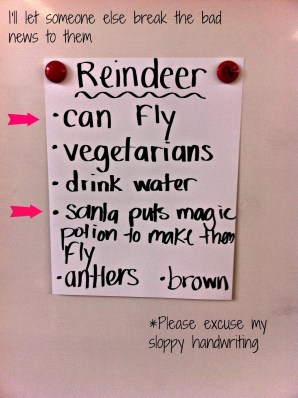 I'll let someone else break the bad
news to them
Reindeer
• can Fly
• vegetarians
• drink water
• santa puts magic
potion to make them
Fly
• antlers • brown
*Please excuse my
sloppy handwriting